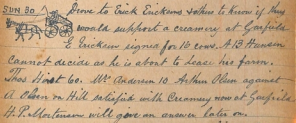 SUN 30 Drove to Erick Ericksens & others to know if they
would support a creamery at Garfield
E Ericksen signed for 16 cows. A B Hansen
cannot decide as he is about to lease his farm.
Thos Hirst 60. Mr Andersen 10 Arthur Olsen against
A Olsen on Hill satisfied with Creamery now at Garfield
H.P. Mortensen will give an answer later on.